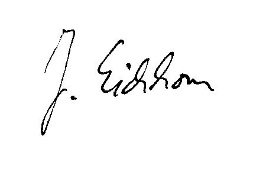 J. Eichhorn